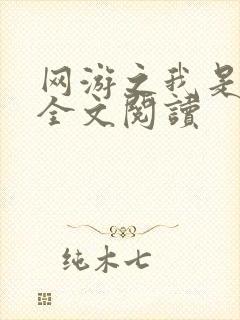 网游之我是
全文閱讀
纯木七